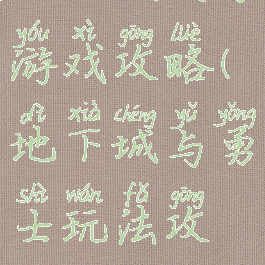 yóu xì gōng lüè
游戏攻略(
dì xià chéng yǔ yǒng
地下城与勇
shì wán fǎ gōng
士玩法攻